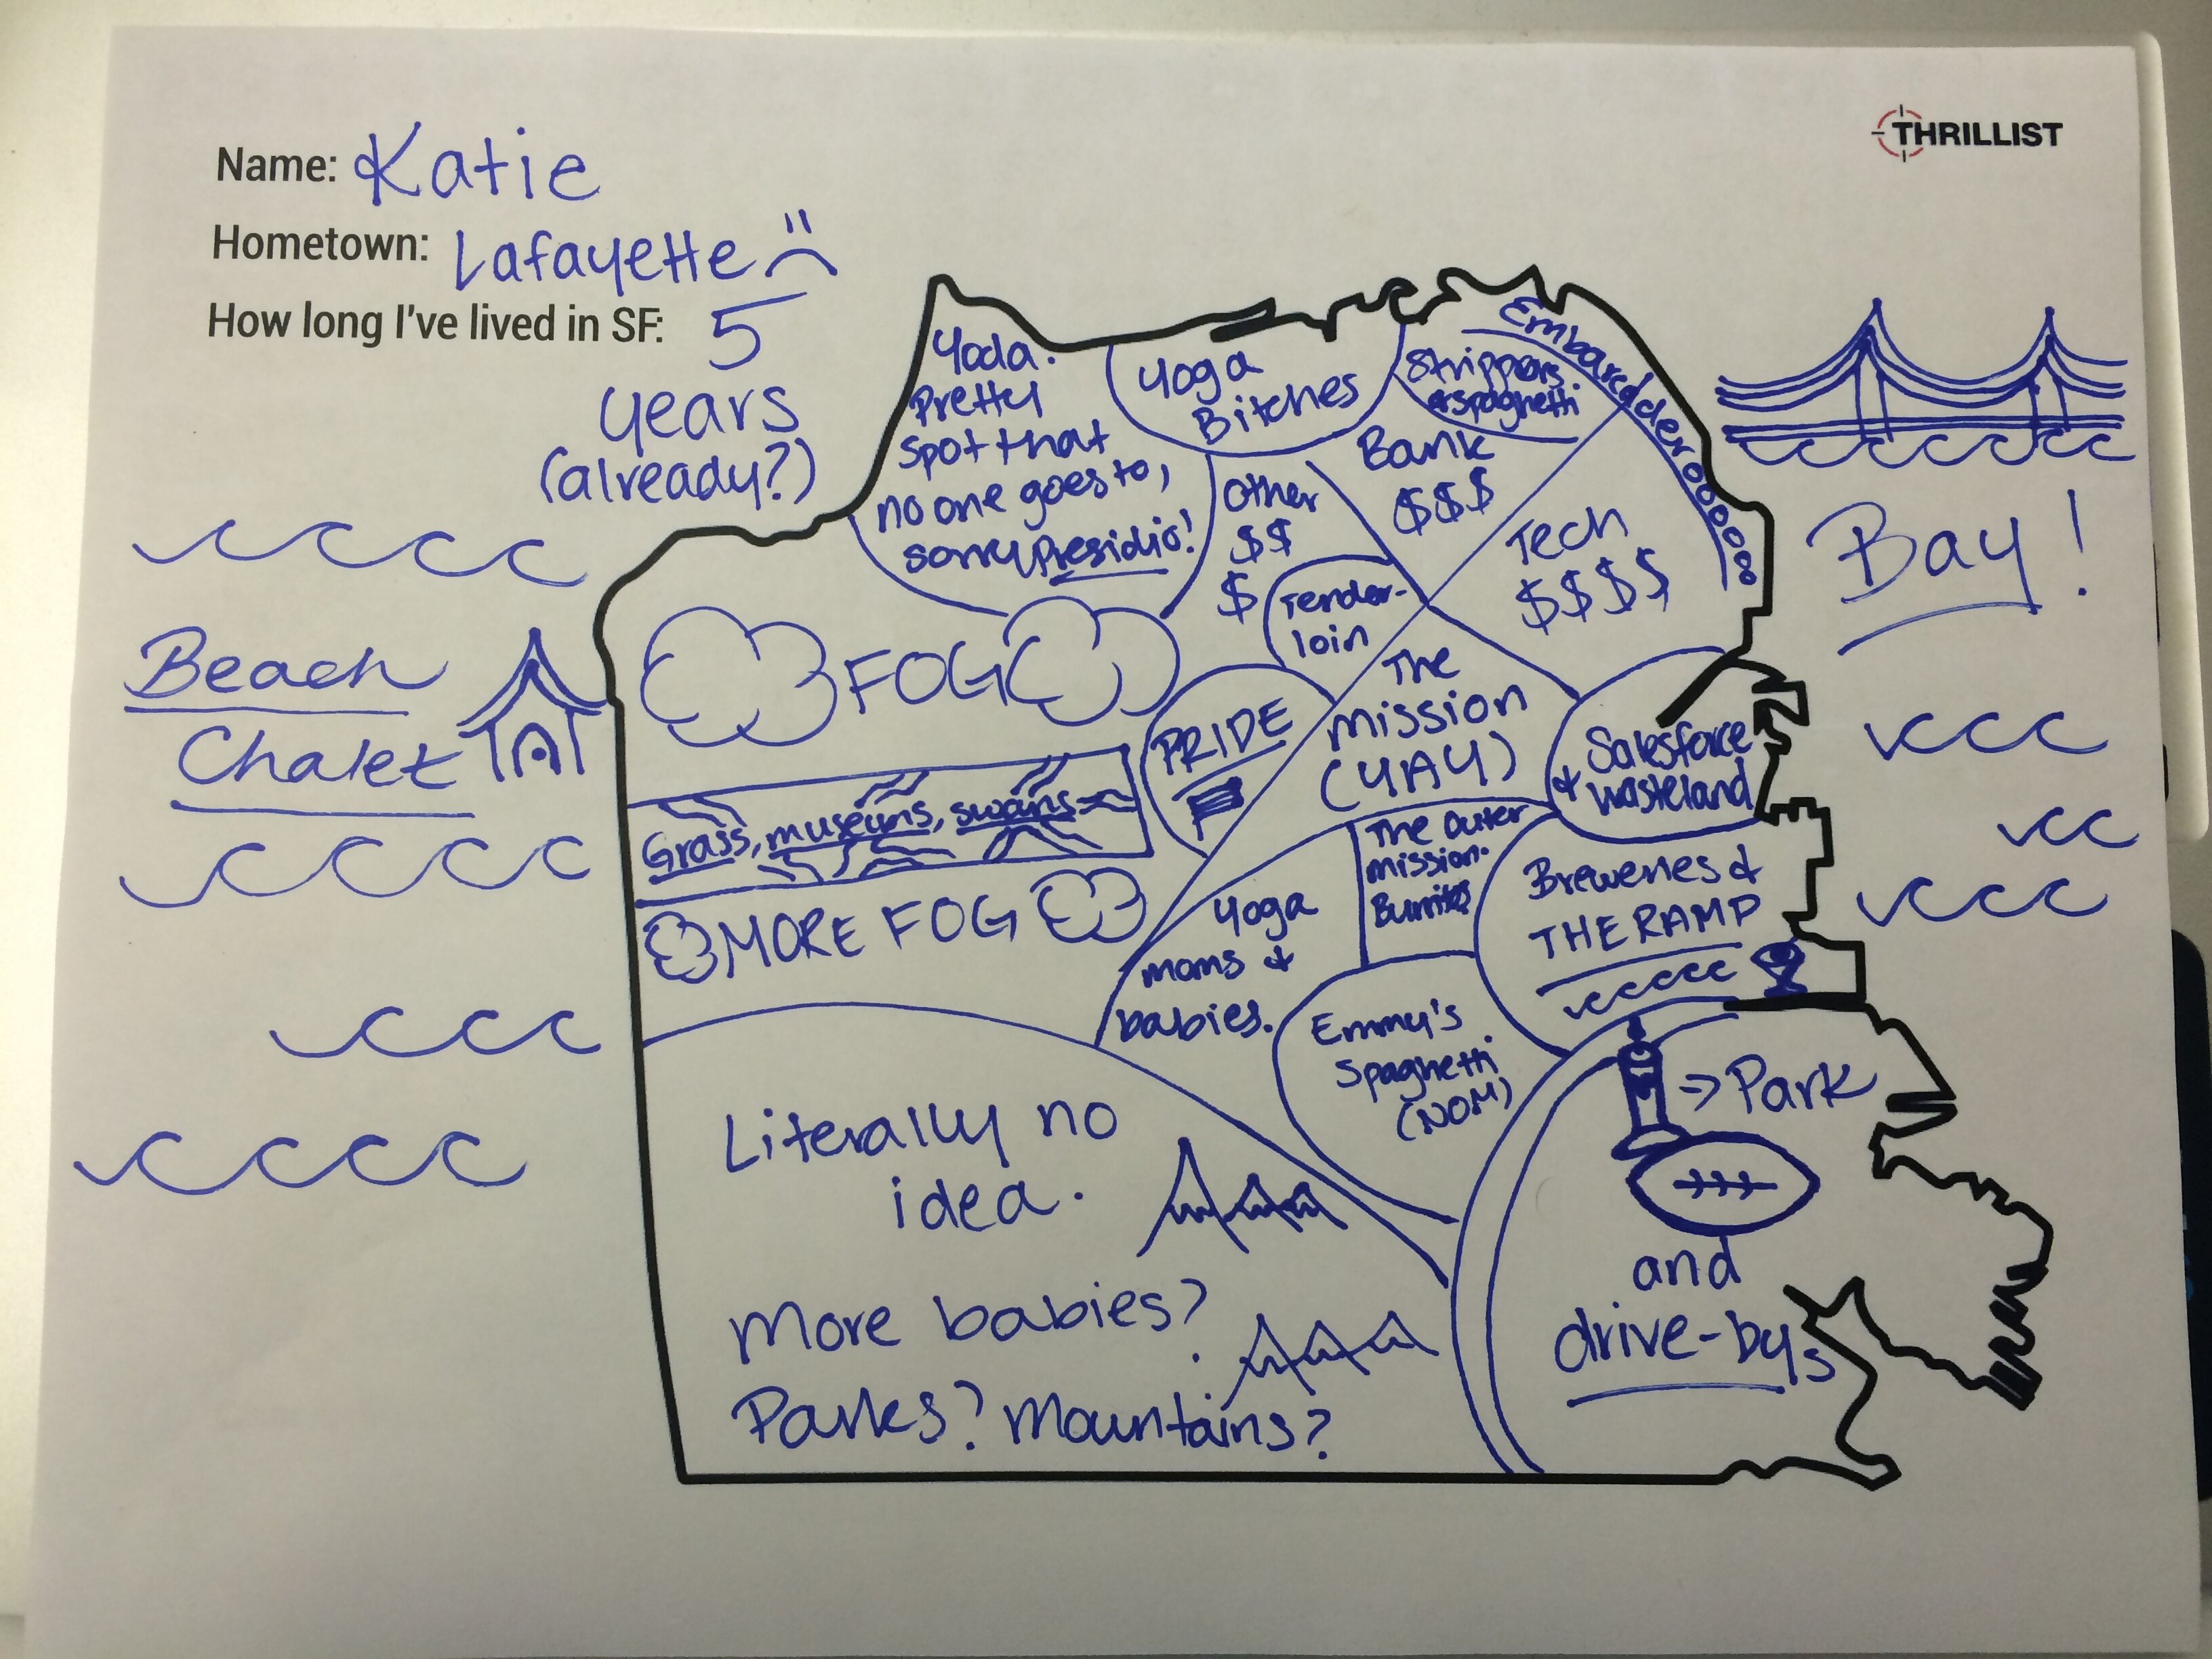 THRILLIST
Name: Katie
Hometown: Lafayette
How long I've lived in SF: 5
years
(already?)
Yoda.
Pretty
spot that
no one goes to,
sorry Presidio!
Yoga
Bitches
Strippers
& spaghetti
Embarcaderoooooo
Bank
$$$
Other
$$
$
Tech
$$$$
Tender-
loin
Bay!
Beach
Chalet
FOG
PRIDE
The
Mission
(YAY)
Salesforce
& wasteland
Grass, museums, swans
The Outer
Mission.
Burritos
MORE FOG
Yoga
moms &
babies.
Breweries &
THE RAMP
Emmy's
Spaghetti
(NOM)
-> Park
and
drive-bys
Literally no
idea.
More babies?
Parks? Mountains?